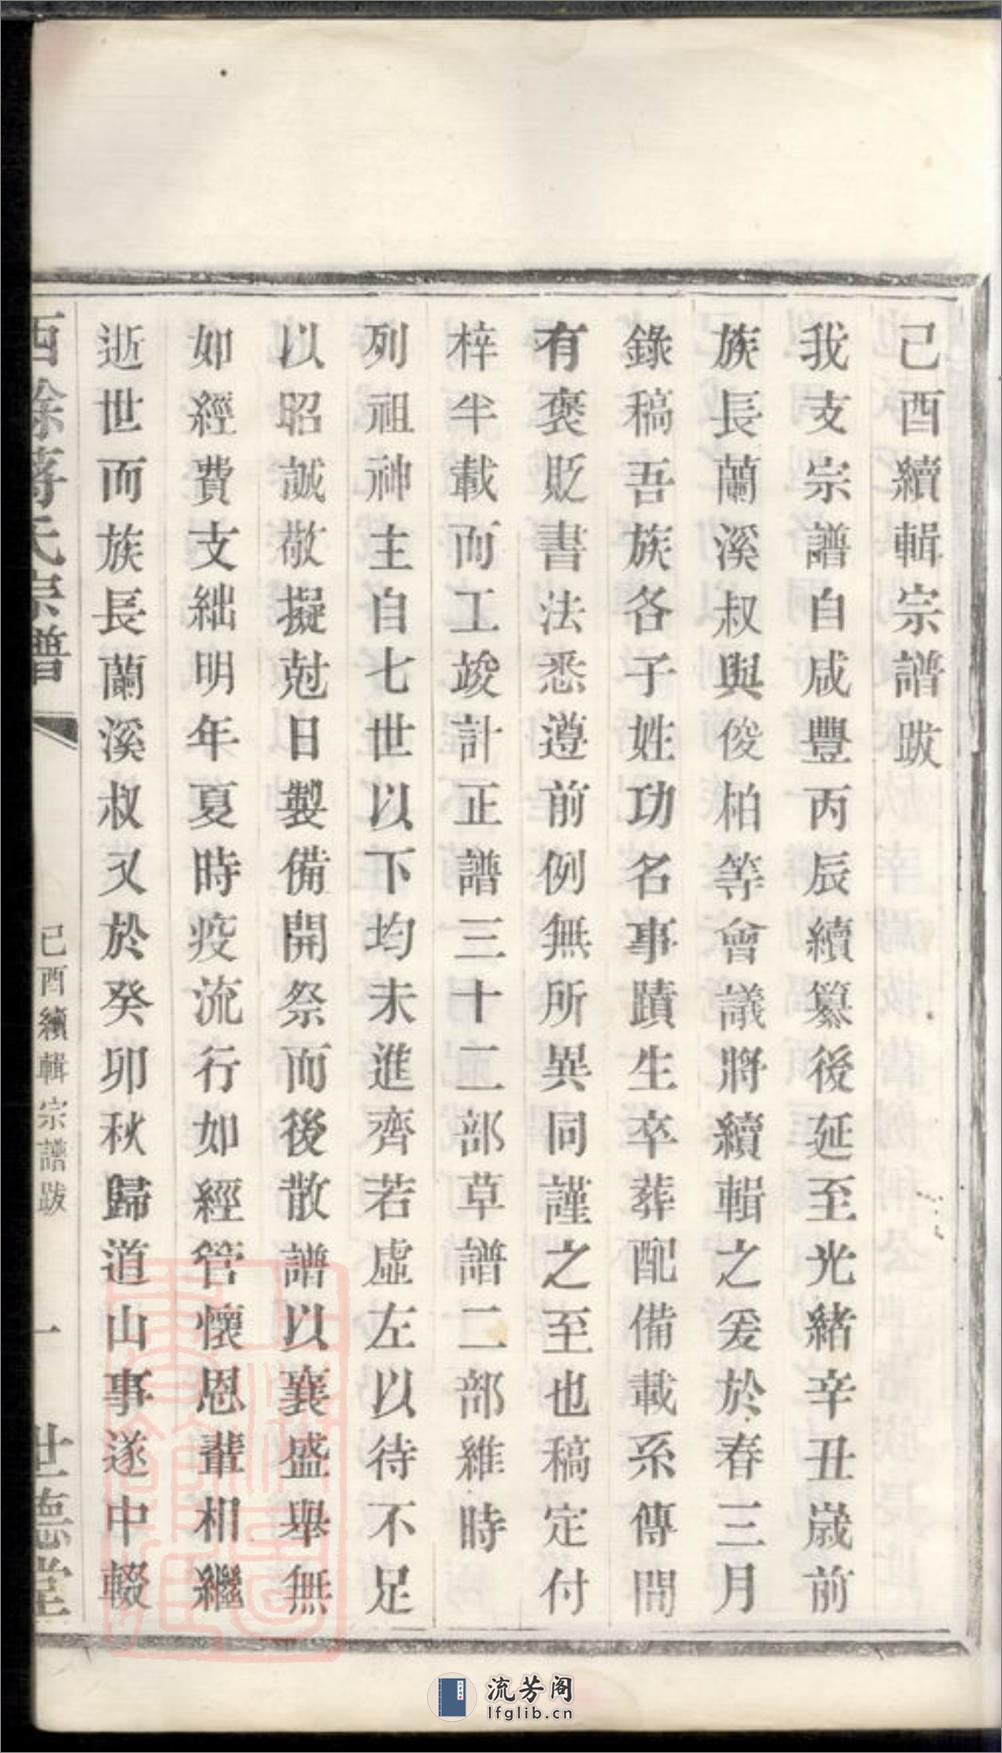 己酉續輯宗譜跋
我支宗譜自咸豐丙辰續纂後延至光緒辛丑歲前
族長蘭溪叔與俊柏等會議將續輯之爰於春三月
錄稿吾族各子姓功名事蹟生卒葬配備載系傳間
有褒貶書法悉遵前例無所異同謹之至也稿定付
梓半載而工竣計正譜三十二部草譜二部維時
列祖神主自七世以下均未進齊若虛左以待不足
以昭誠敬擬尅日製備開祭而後散譜以襄盛舉無
如經費支絀明年夏時疫流行如經管懷恩輩相繼
逝世而族長蘭溪叔又於癸卯秋歸道山事遂中輟
西徐蔣氏宗譜
己酉續輯宗譜跋
一
世德堂
流芳阁
lfglib.cn